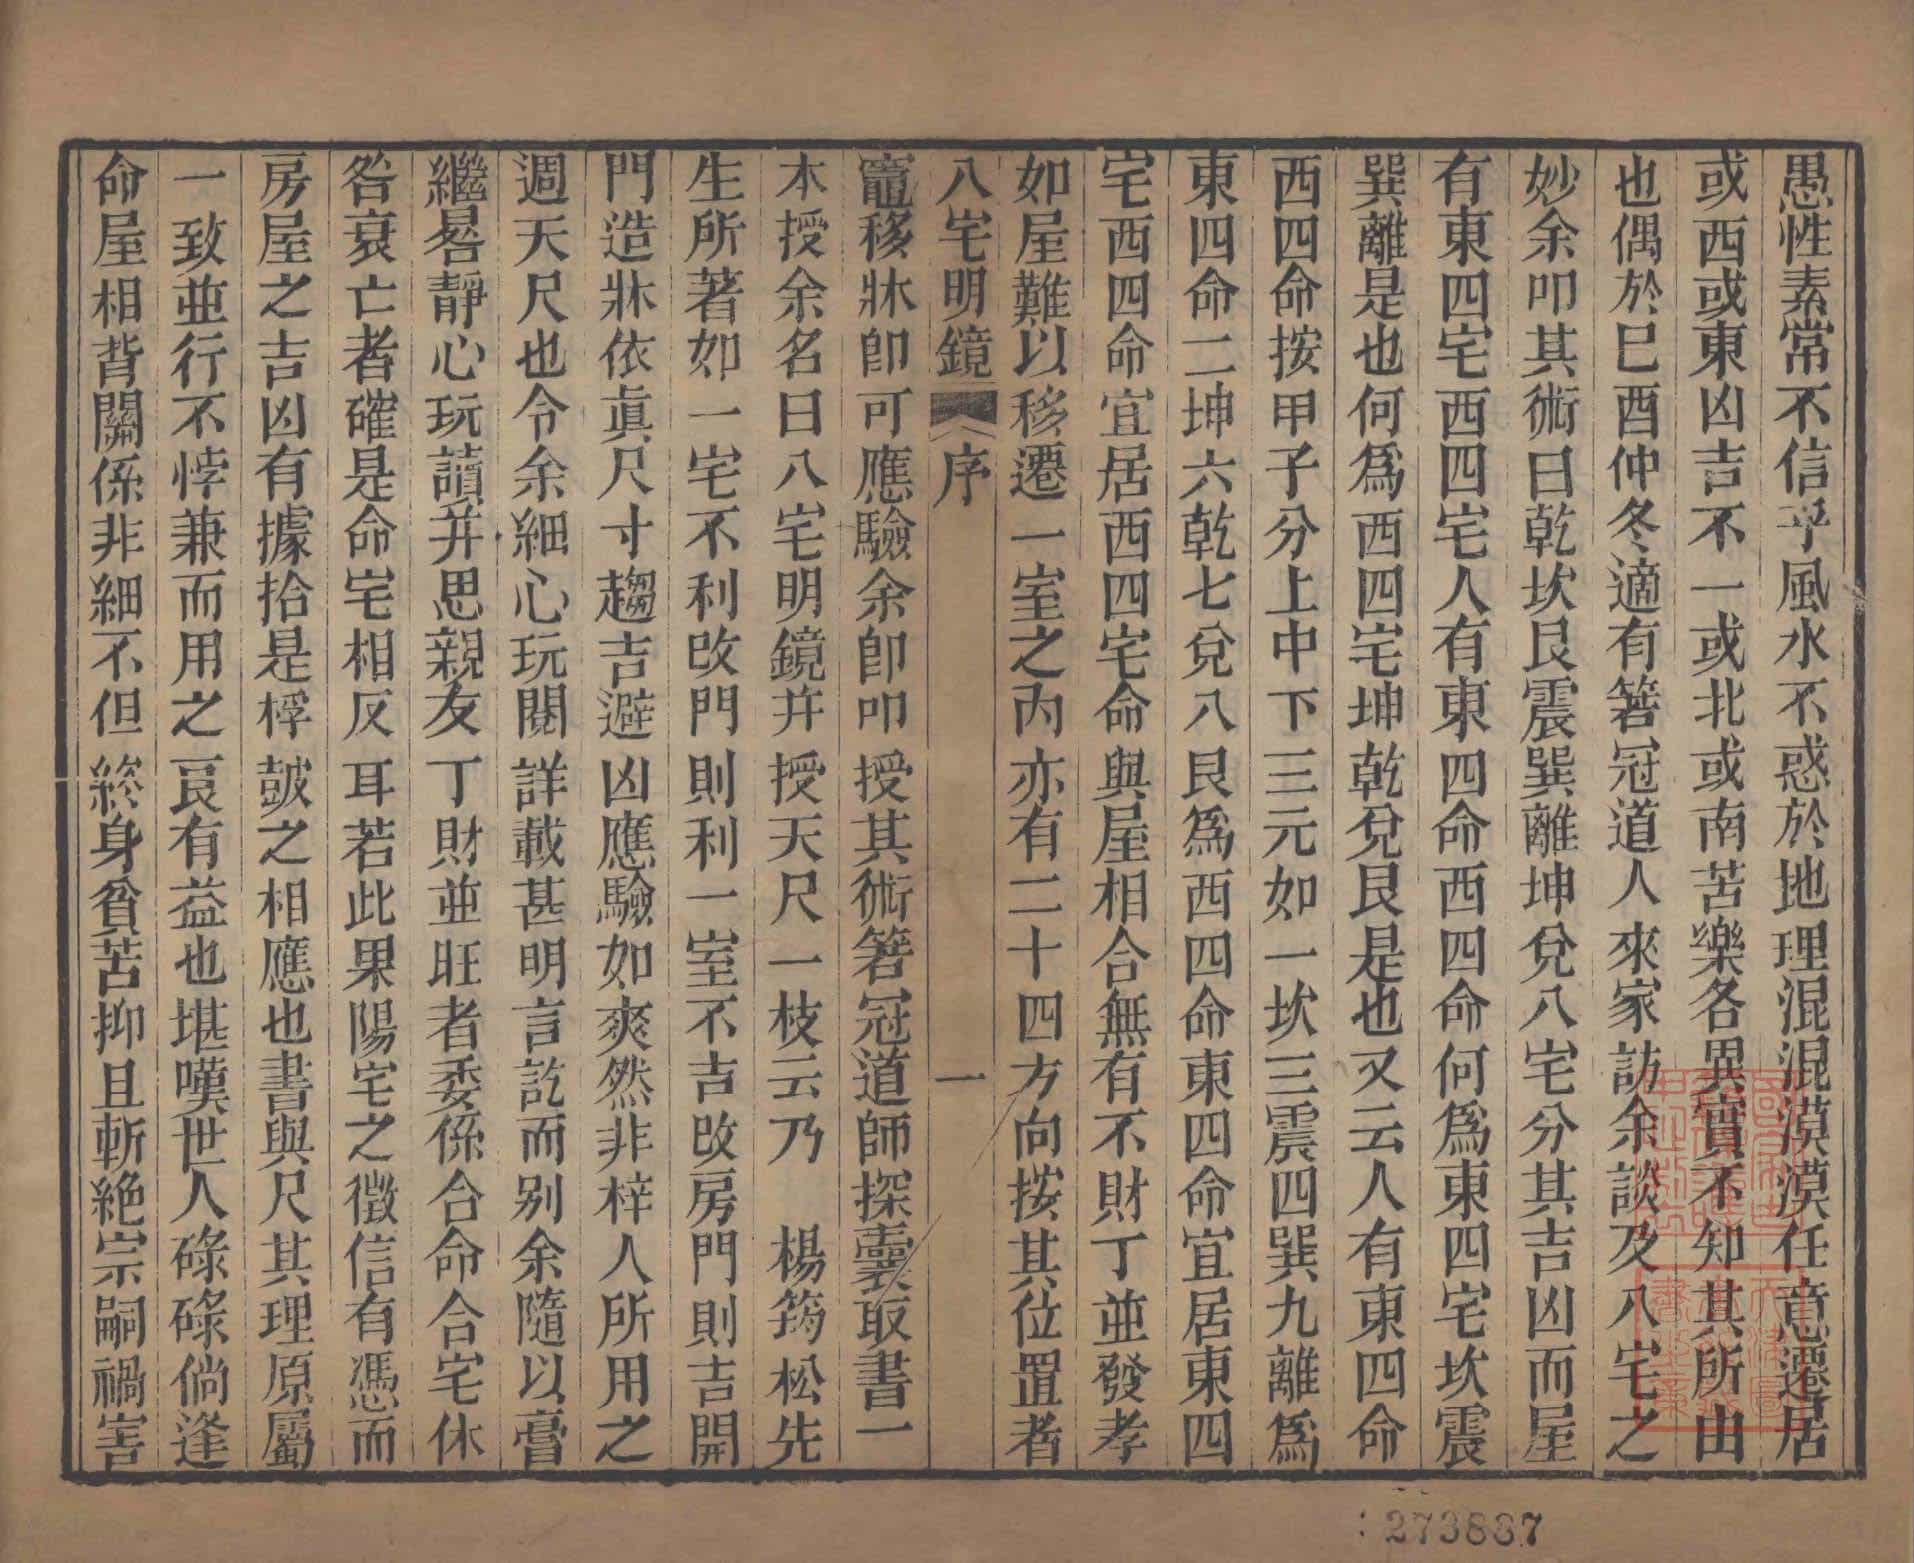 愚性素常不信乎風水不惑於地理混混漠漠任意遷居
或西或東凶吉不一或北或南苦樂各異實不知其所由
也偶於巳酉仲冬適有箬冠道人來家訪余談及八宅之
妙余叩其術曰乾坎艮震巽離坤兌八宅分其吉凶而屋
有東四宅西四宅人有東四命西四命何為東四宅坎震
巽離是也何為西四宅坤乾兌艮是也又云人有東四命
西四命按甲子分上中下三元如一坎三震四巽九離為
東四命二坤六乾七兌八艮為西四命東四命宜居東四
宅西四命宜居西四宅命與屋相合無有不財丁並發孝
如屋難以移遷一室之內亦有二十四方向按其位置者
八宅明鏡 序 一
竈移牀即可應驗余即叩授其術箬冠道師探囊取書一
本授余名曰八宅明鏡并授天尺一枝云乃 楊筠松先
生所著如一宅不利改門則利一室不吉改房門則吉開
門造牀依眞尺寸趨吉避凶應驗如爽然非梓人所用之
週天尺也令余細心玩閱詳載甚明言訖而别余隨以膏
繼晷靜心玩讀并思親友丁財並旺者委係合命合宅休
咎衰亡者確是命宅相反耳若此果陽宅之徵信有憑而
房屋之吉凶有據拾是桴鼓之相應也書與尺其理原屬
一致並行不悖兼而用之良有益也堪嘆世人碌碌倘逢
命屋相背關係非細不但終身貧苦抑且斬絶宗嗣禍害
273887